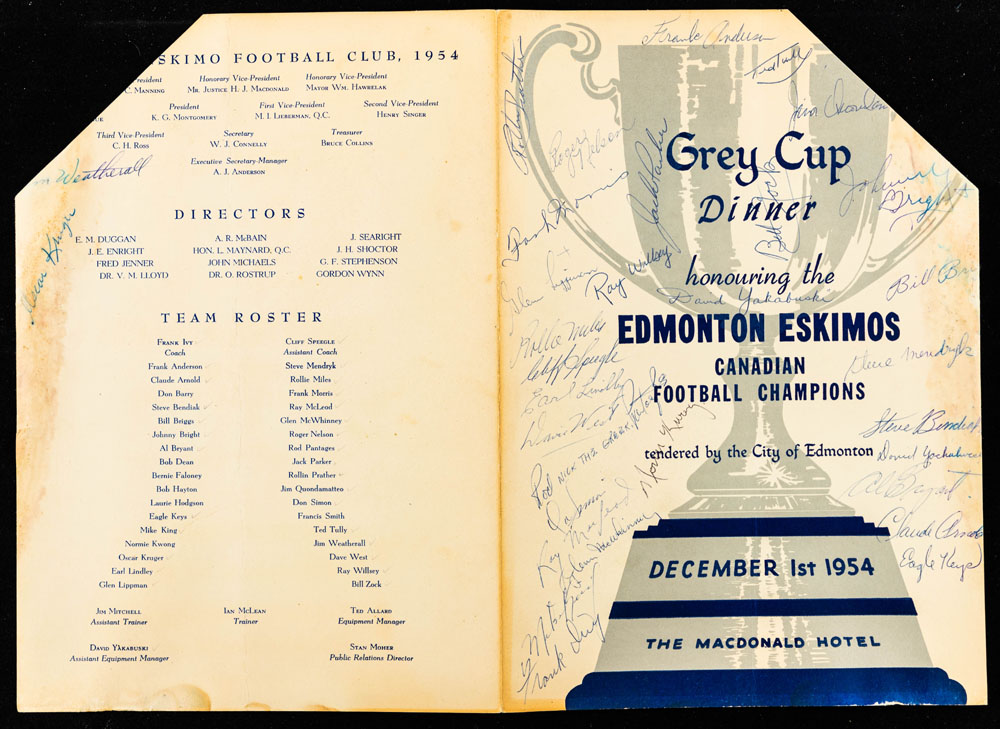 SKIMO FOOTBALL CLUB, 1954
resident Honorary Vice-President Honorary Vice-President
C. MANNING MR. JUSTICE H. J. MACDONALD MAYOR WM. HAWRELAK
President First Vice-President Second Vice-President
UE K. G. MONTGOMERY M. I. LIEBERMAN, Q.C. HENRY SINGER
Third Vice-President Secretary Treasurer
C. H. ROSS W. J. CONNELLY BRUCE COLLINS
Executive Secretary-Manager
A. J. ANDERSON
Weatherall
Oscar Kruger
DIRECTORS
E. M. DUGGAN A. R. McBAIN J. SEARIGHT
J. E. ENRIGHT HON. L. MAYNARD, Q.C. J. H. SHOCTOR
FRED JENNER JOHN MICHAELS G. F. STEPHENSON
DR. V. M. LLOYD DR. O. ROSTRUP GORDON WYNN
TEAM ROSTER
FRANK IVY CLIFF SPEEGLE
Coach Assistant Coach
FRANK ANDERSON STEVE MENDRYK
CLAUDE ARNOLD ROLLIE MILES
DON BARRY FRANK MORRIS
STEVE BENDIAK RAY McLEOD
BILL BRIGGS GLEN McWHINNEY
JOHNNY BRIGHT ROGER NELSON
AL BRYANT ROD PANTAGES
BOB DEAN JACK PARKER
BERNIE FALONEY ROLLIN PRATHER
BOB HAYTON JIM QUONDAMATTEO
LAURIE HODGSON DON SIMON
EAGLE KEYS FRANCIS SMITH
MIKE KING TED TULLY
NORMIE KWONG JIM WEATHERALL
OSCAR KRUGER DAVE WEST
EARL LINDLEY RAY WILLSEY
GLEN LIPPMAN BILL ZOCK
JIM MITCHELL IAN McLEAN TED ALLARD
Assistant Trainer Trainer Equipment Manager
DAVID YAKABUSKI STAN MOHER
Assistant Equipment Manager Public Relations Director
Frank Anderson
Ted Tully
Rollin Prather
Roger Nelson
Jackie Parker
Grey Cup
Dinner
Bill Zock
Johnny Bright
Frank Morris
Glen Lippman
Ray Willsey
honouring the
David Yakabuski
Bill
EDMONTON ESKIMOS
Rollie Miles
Cliff Speegle
CANADIAN
FOOTBALL CHAMPIONS
Steve Mendryk
Earl Lindley
Dave West
Steve Bendiak
tendered by the City of Edmonton
David Yachabuski
Rod NICK THE GREEK Pantages
Normie Kwong
Al Bryant
Don Simon
Ray McLeod
McWhinney
Claude Arnold
Eagle Keys
Frank Ivy
DECEMBER 1st 1954
THE MACDONALD HOTEL